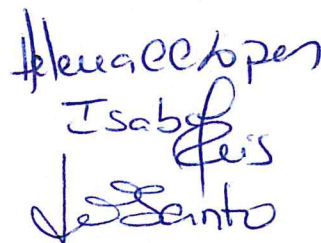 Helena CC Lopes
Isabel
Reis
Santo